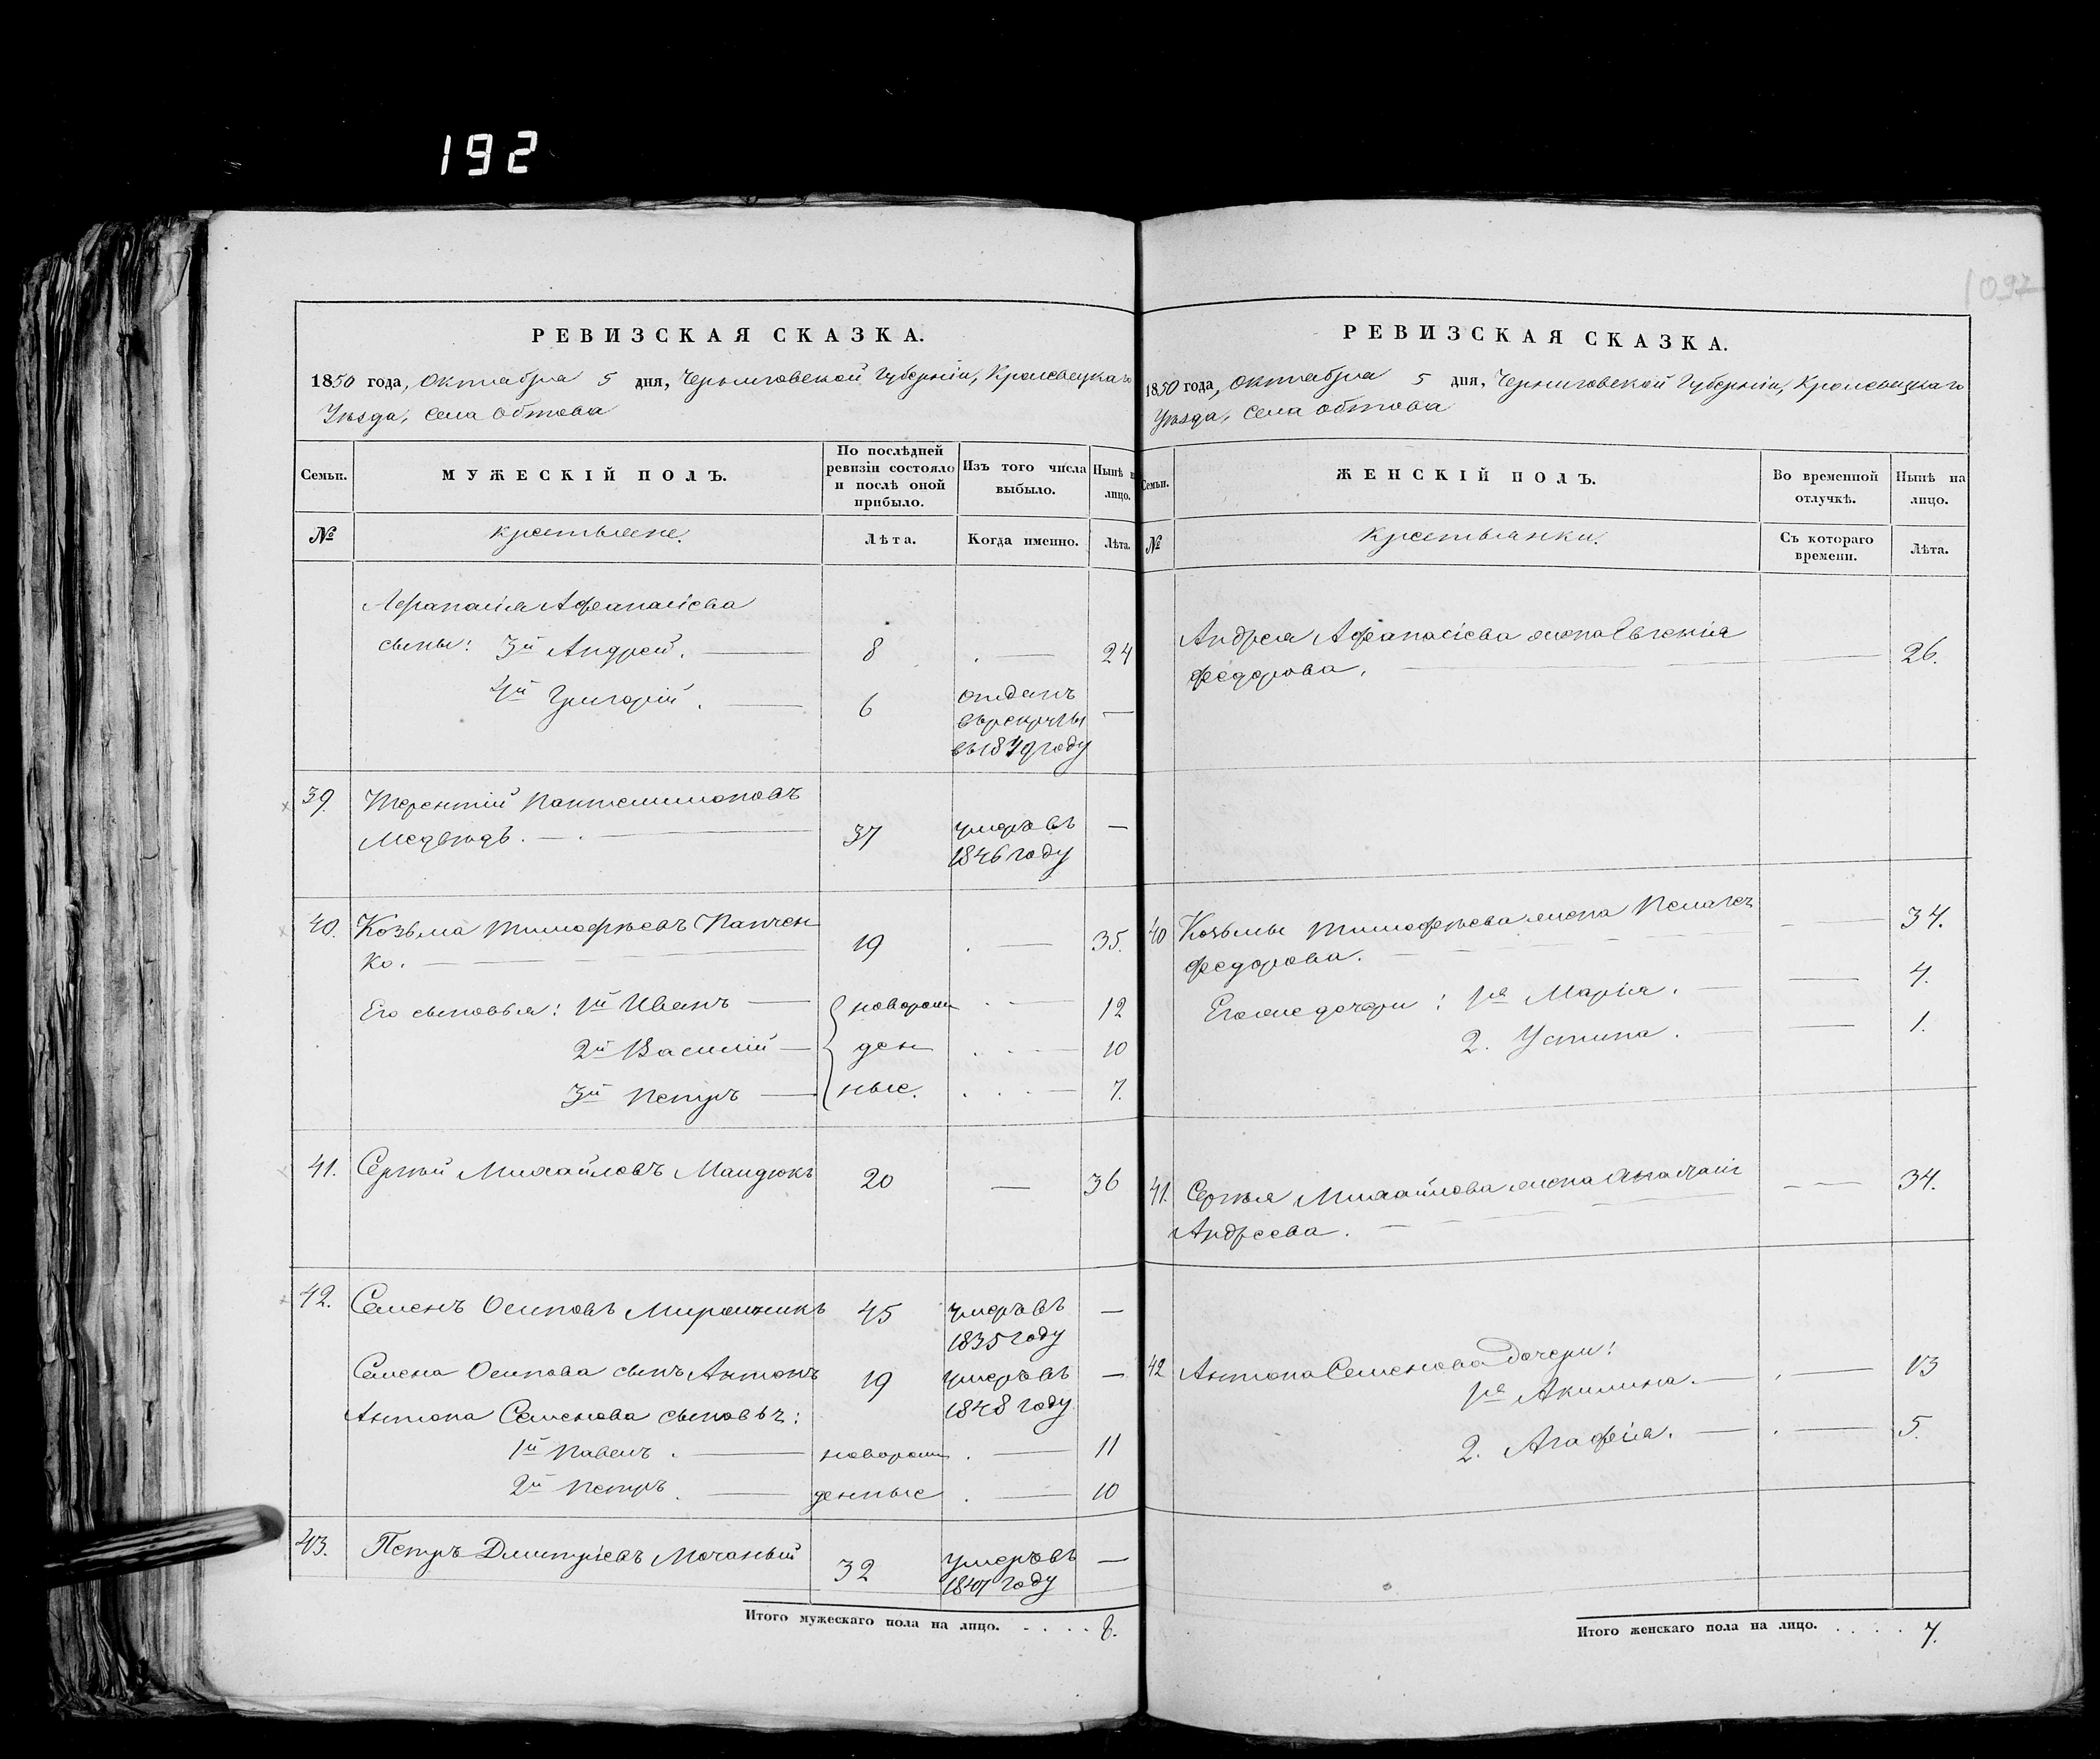 192
1097
РЕВИЗСКАЯ СКАЗКА.
1850 года, Октября 5 дня, Черниговской Губерніи, Кролевецкаго
Уѣзда, Села Обтова
Семьи.
МУЖЕСКІЙ ПОЛЪ.
По послѣдней
ревизіи состояло
и послѣ оной
прибыло.
Изъ того числа
выбыло.
Нынѣ н
лицо.
№
Крестьяне.
Лѣта.
Когда именно.
Лѣта.
Афанасія Афанасіева
сыны: 3й Андрей. 8 24
4й Григорій. 6 отданъ
въ рекруты
въ 1849 году
39. Терентій Пантелимоновъ
Медвѣдь. 37 умеръ въ
1846 году
40. Козьма Тимофѣевъ Панчен
ко. 19 35.
Его сыновья: 1й Иванъ новорож 12
2й Василій ден 10
3й Петръ ные. 7.
41. Сергѣй Михайловъ Мандюкъ 20 36
42. Семенъ Осиповъ Мирошникъ 45 умеръ въ
1835 году
Семена Осипова сынъ Антонъ 19 умеръ въ
1848 году
Антона Семенова сыновья:
1й Павелъ. новорож 11
2й Петръ. денные 10
43. Петръ Дмитріевъ 32 умеръ въ
1847 году
Итого мужескаго пола на лицо. 8.
РЕВИЗСКАЯ СКАЗКА.
1850 года, Октября 5 дня, Черниговской Губерніи, Кролевецкаго
Уѣзда, Села Обтова
Семьи.
ЖЕНСКІЙ ПОЛЪ.
Во временной
отлучкѣ.
Нынѣ на
лицо.
№
Крестьянки.
Съ котораго
времени.
Лѣта.
Андрея Афанасіева жена Евгенія
Федорова. 26.
40 Козьмы Тимофѣева жена
Федорова. 34.
Его же дочери: 1я Марія. 4.
2. Устина. 1.
41. Сергѣя Михайлова жена
Андреева. 34.
42 Антона Семенова дочери:
1я Акилина. 13
2. Агафія. 5.
Итого женскаго пола на лицо. 7.